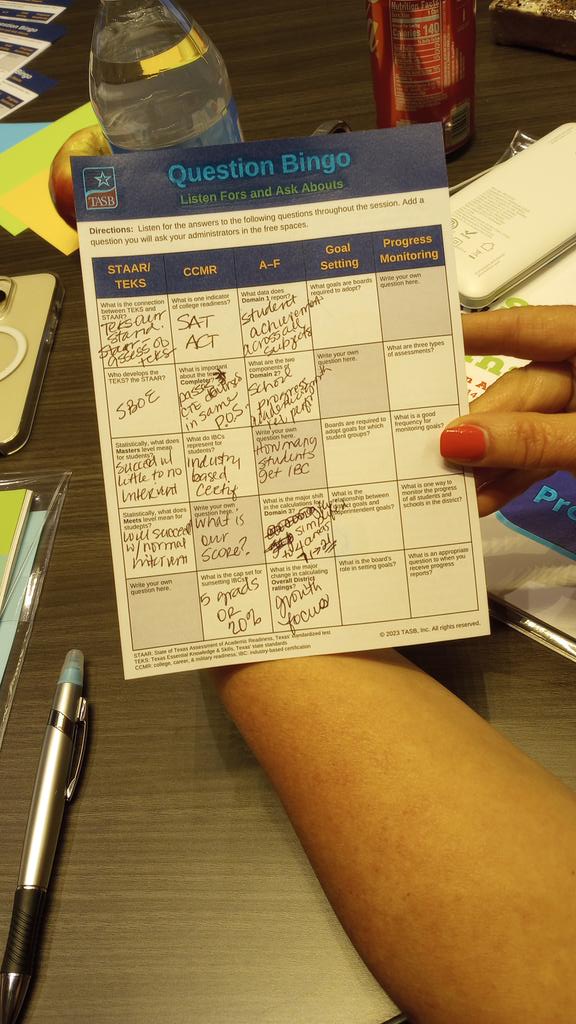 Question Bingo
Listen Fors and Ask Abouts
TASB
Directions: Listen for the answers to the following questions throughout the session. Add a
question you will ask your administrators in the free spaces.
STAAR/
TEKS
CCMR
A–F
Goal
Setting
Progress
Monitoring
What is the connection
between TEKS and
STAAR?
TEKS our
stand.
assess ob
TEKS
What is one indicator
of college readiness?
SAT
ACT
What data does
Domain 1 report?
student
achievement
across all
subjects
What goals are boards
required to adopt?
Write your own
question here.
Who develops the
TEKS? the STAAR?
SBOE
What is important
about the
Completer
in same
P.O.S.
What are the two
components of
Domain 2?
School
progress
Write your own
question here.
What are three types of
assessments?
Statistically, what does
Masters level mean
for students?
Succeed w/
little to no
intervent
What do IBCs
represent for
students?
Industry
based
Certif
Write your own
question here.
How many
students
get IBC
Boards are required to
adopt goals for which
student groups?
What is a good
frequency for
monitoring goals?
Statistically, what does
Meets level mean for
students?
will succeed
w/ normal
intervent
Write your own
question here.
What is
our
score?
What is the major shift
in the calculations for
Domain 3?
What is the
relationship between
goals and
superintendent goals?
What is one way to
monitor the progress
of all students and
schools in the district?
Write your own
question here.
What is the cap set for
sunsetting IBCs?
5 grads
OR
20%
What is the major
change in calculating
Overall District
ratings?
growth
focus
What is the board's
role in setting goals?
What is an appropriate
question to ask when you
receive progress
reports?
STAAR: State of Texas Assessment of Academic Readiness, Texas' standardized test
TEKS: Texas Essential Knowledge & Skills, Texas' state standards
CCMR: college, career, & military readiness, IBC: industry-based certification
© 2023 TASB, Inc. All rights reserved.
Nutrition Facts
Calories 140
Bingo
Pro